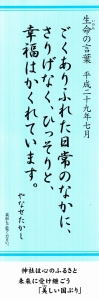 生命の言葉　平成二十九年七月
ごくありふれた日常のなかに、
さりげなく、ひっそりと、
幸福はかくれています。
やなせたかし
神社は心のふるさと
未来に受け継ごう
「美しい国ぶり」